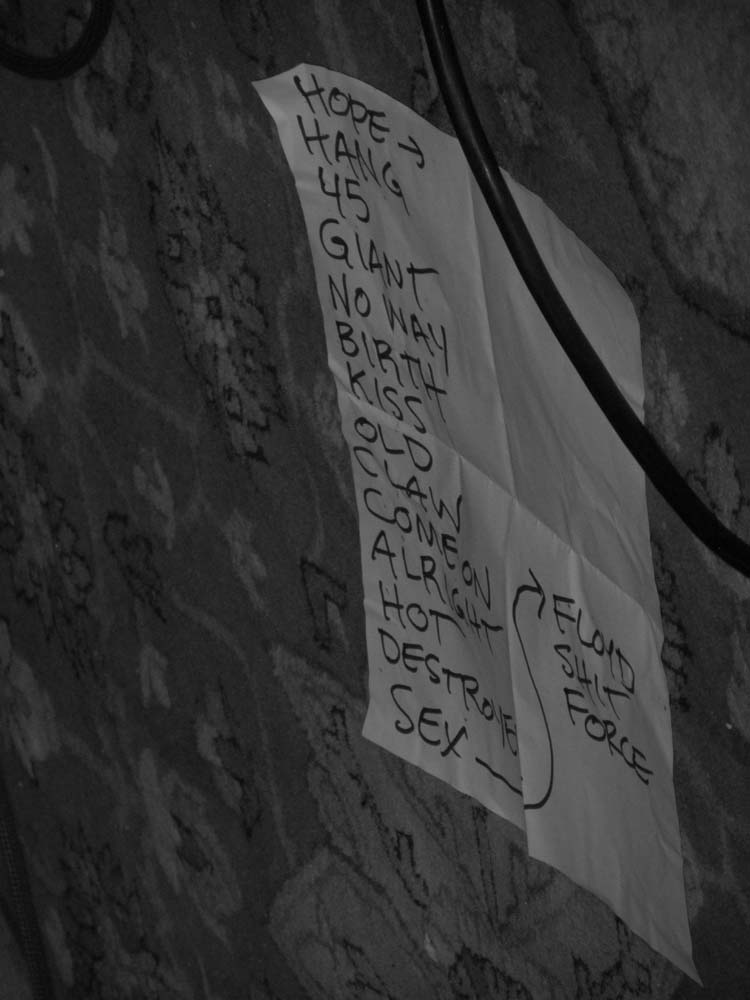 HOPE →
HANG
45
GIANT
NO WAY
BIRTH
KISS
OLD
CLAW
COME ON
ALRIGHT
HOT
DESTROYE
SEX
FLOYD
SHIT
FORCE